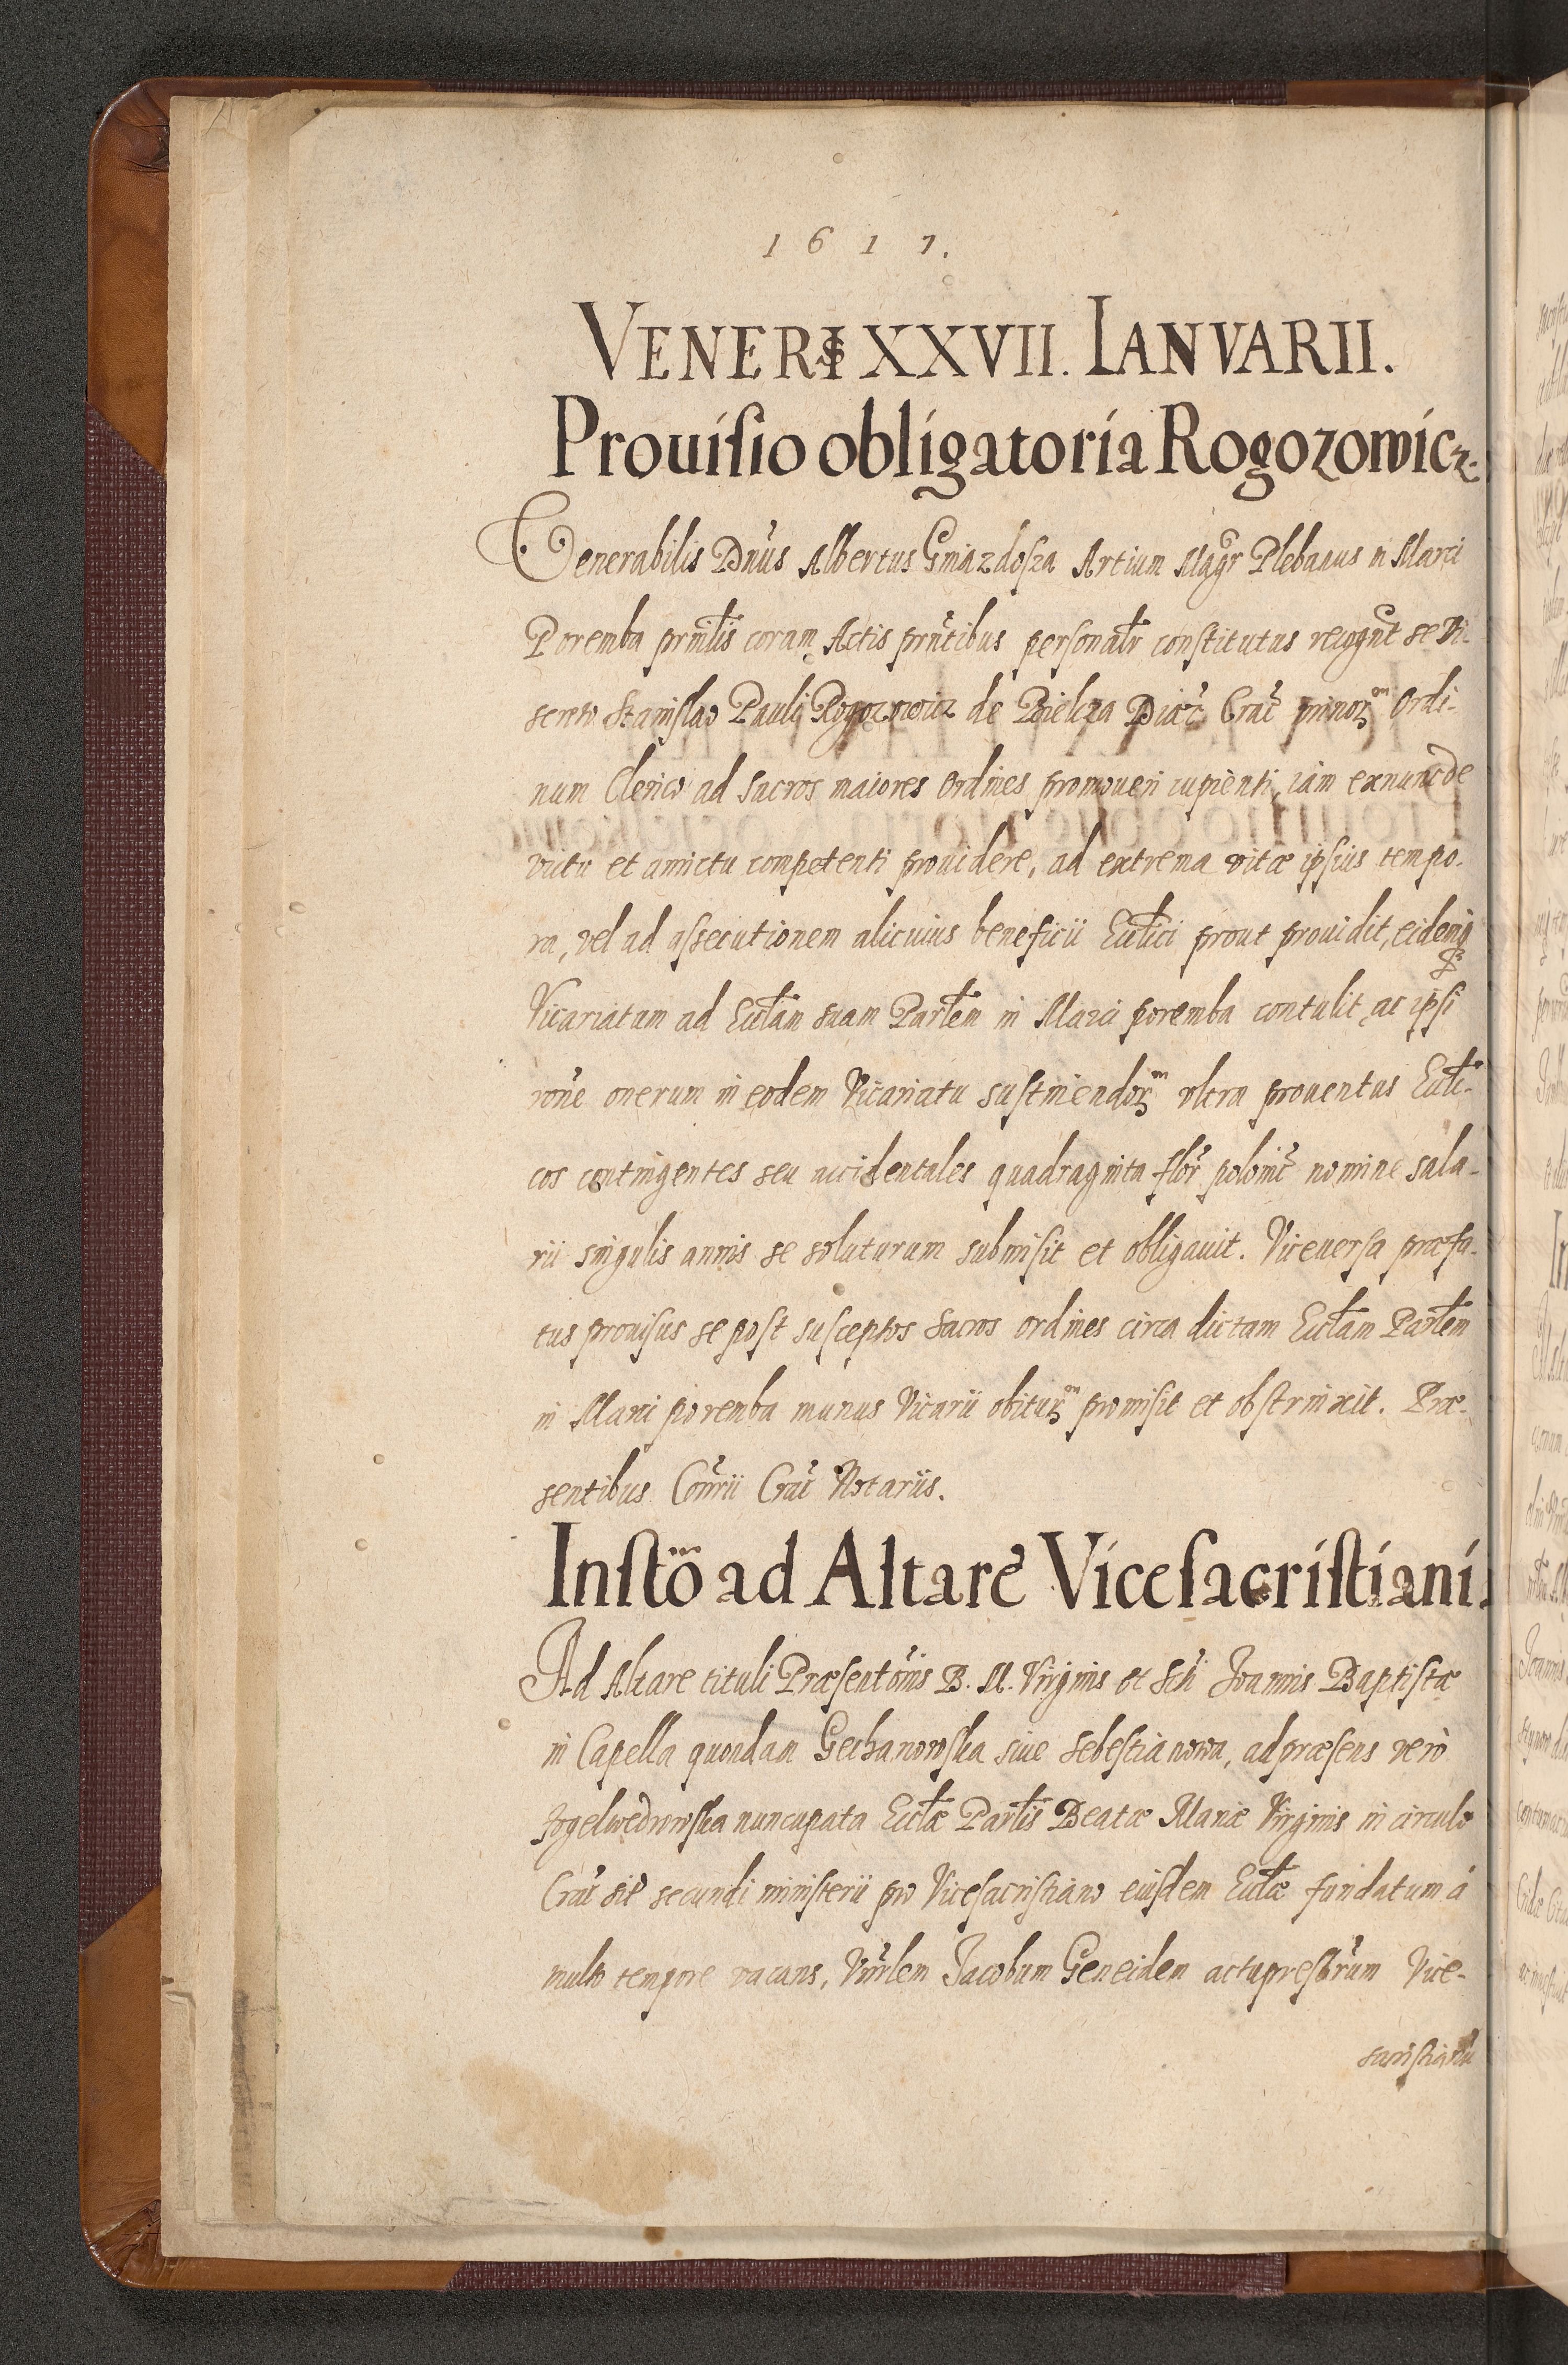 1617.
VENERIS XXVII. IANVARII.
Prouisio obligatoria Rogozowicz.
Venerabilis Dnus Albertus Gniazdosza Artium Magr Plebanus in Marci
Poremba prinlis coram Actis prntibus personalr constitutus recognt se Di-
screto Stanislao Pauli Rogozowicz de Bielcza Diaec Crac minorum Ordi-
num Clerico ad Sacros maiores Ordines promoueri cupienti, iam exnunc de
victu et amictu competenti prouidere, ad extrema vitæ ipsius tempo-
ra, vel ad assecutionem alicuius beneficii Ecclici prout prouidit, eidemq
Vicariatum ad Ecclam suam Parlem in Marci poremba contulit, ac ipsi
rone onerum in eodem Vicariatu sustinendorum vltra prouentus Eccli-
cos contingentes seu accidentales quadraginta flor polonic nomine sala-
rii singulis annis se soluturum submisit et obligauit. Viceuersa præfa-
tus prouisus se post susceptos Sacros ordines circa dictam Ecclam Parlem
in Marci poremba munus Vicarii obiturum promisit et obstrinxit. Præ-
sentibus Conrii Crac Notariis.
Insto ad Altare Vicesacristiani.
Ad Altare tituli Præsentonis B. M. Virginis et Scti Joannis Baptistæ
in Capella quondam Gechanowska siue Sebestianowa, ad præsens vero
Fogelwedrowska nuncupata Ecclæ Parlis Beatæ Mariæ Virginis in circulo
Crac secundi ministerii pro Vicesacristiano eiusdem Ecclæ fundatum á
multo tempore vacans, Vnrlem Jacobum Geneiden actuprestrum Vice-
sacristianu